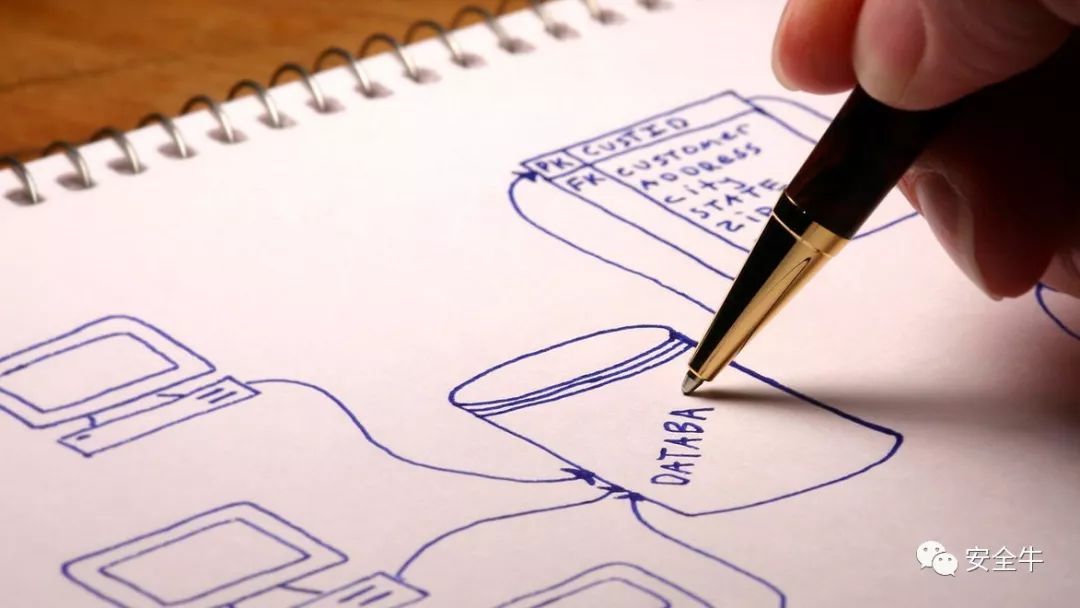 PK CUSTID
FK CUSTOMER
ADDRESS
City
STATE
ZIP
DATABA
安全牛